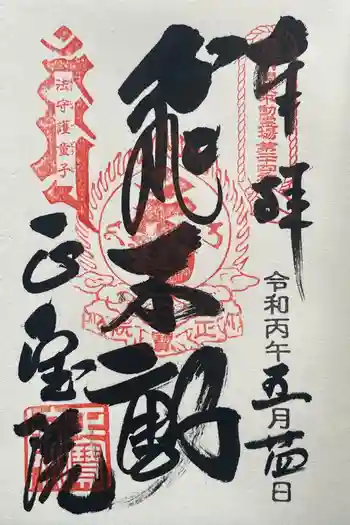 奉拝
令和丙午五月廿四日
飛不動
正宝院
法守護童子